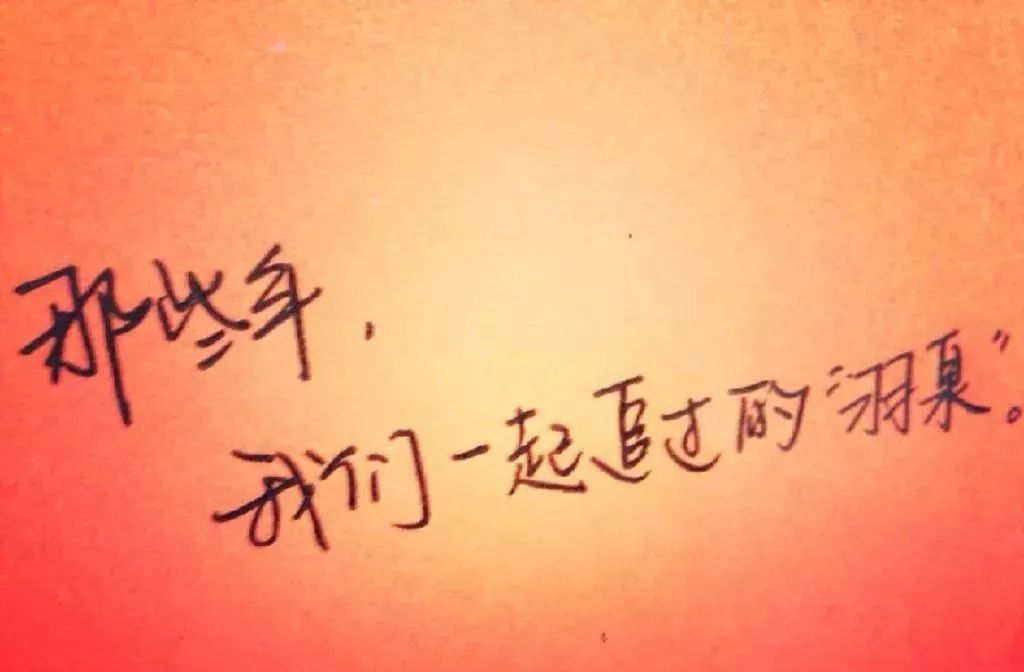 那些年，
我们一起追过的“羽泉”。